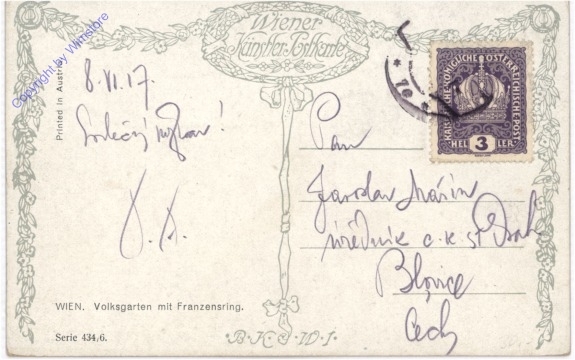 Wiener
Künstler-Postkarte
Copyright by Wimstore
Printed in Austria
8.VI.17.
Srdečný pozdrav!
KAISERLICHE KÖNIGLICHE ÖSTERREICHISCHE POST
3
HELLER
Pan
Jaroslav
úředník c.k.
Blovice
Čechy
WIEN. Volksgarten mit Franzensring.
Serie 434/6.
B.K.W.I.